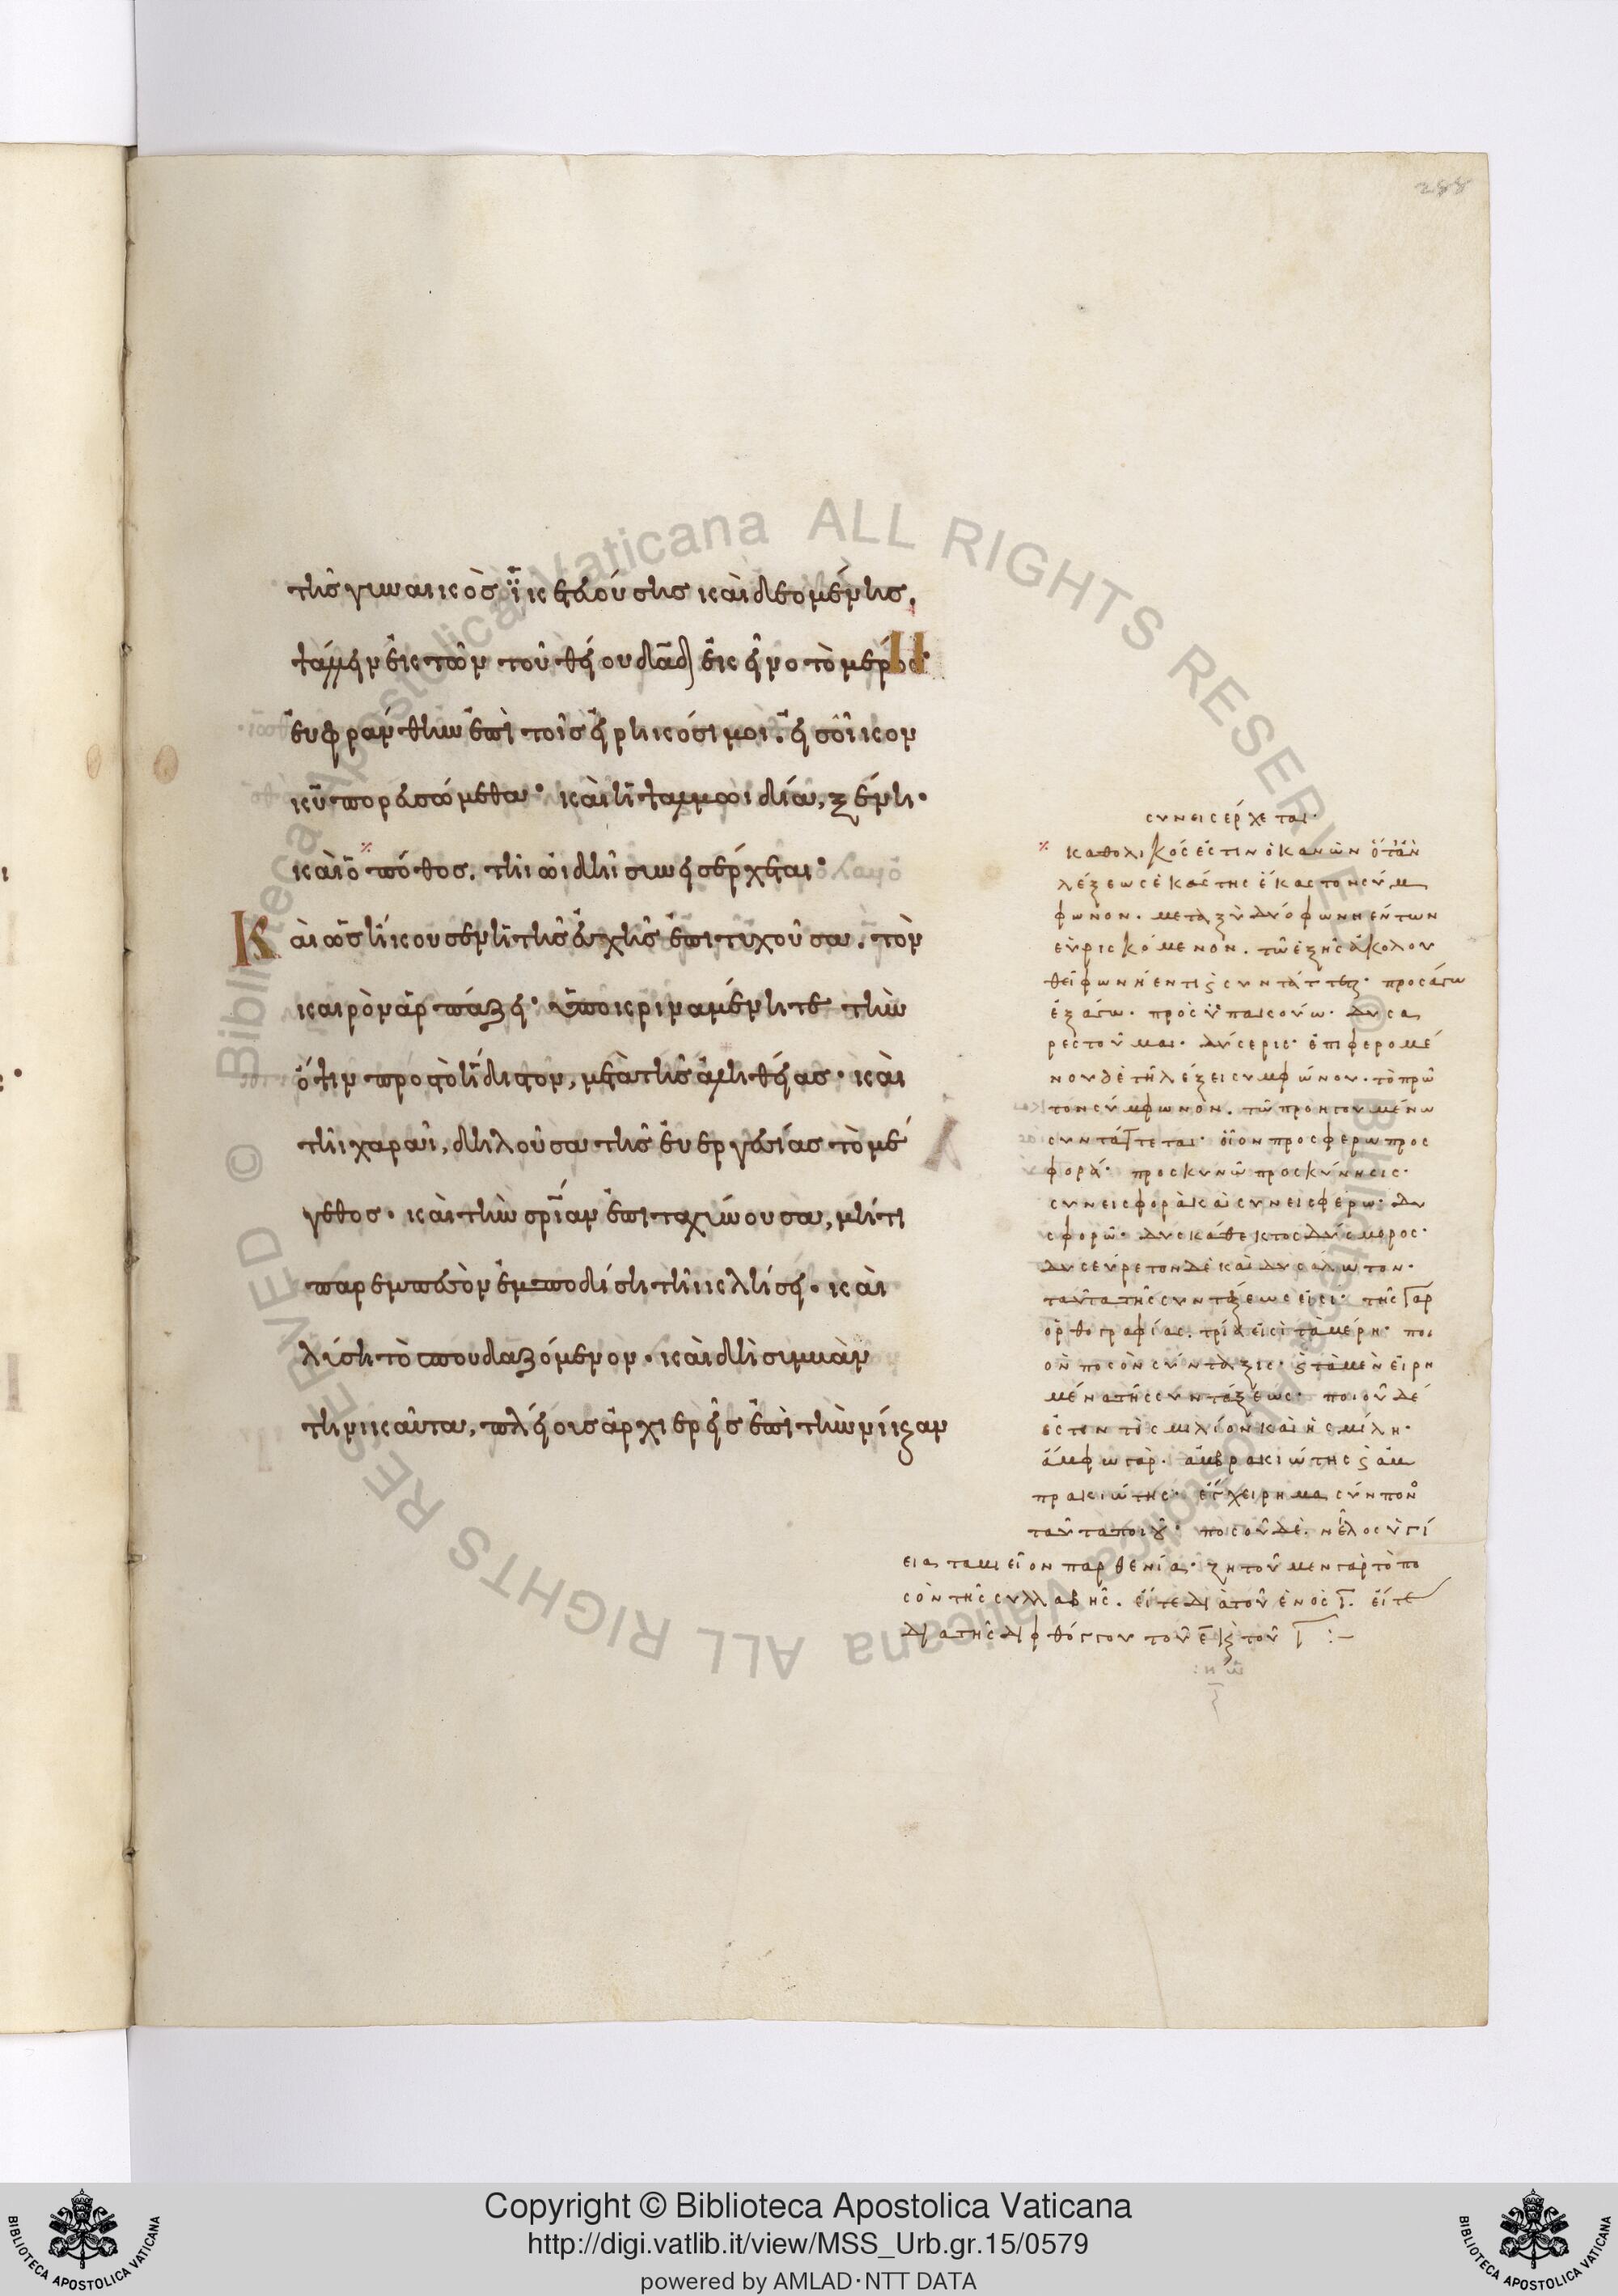 288
τῆς γυναικὸς ἱκετευούσης καὶ δεομένης.
εὐφράνθην ἐπὶ τοῖς εἰρηκόσι μοι. εἰς οἶκον
κυ πορευσόμεθα· καὶ ἡ
καὶ ὁ πόθος. τῆι ὠιδῆι συνεισέρχεται·
Καὶ ὡς ἤκουσεν ἡ τῆς εὐχῆς ἐπιτυχοῦσα. τὸν
καιρὸν ἁρπάζει· ὑποκριναμένη τε τὴν
ὅτιπερ τὸ ἥδιστον, μετὰ τῆς ἀληθείας· καὶ
τῆι χαρᾶι, δηλοῦσα τῆς εὐεργεσίας τὸ μέ
γεθος· καὶ τὴν σρίαν ἐπιταχύνουσα, μή τι
παρεμπεσὸν ἐμποδίση τῆι κλήσει· καὶ
λύση τὸ σπουδαζόμενον· καὶ δὴ σιμνὰν
τηνικαῦτα, πλείοις ἀρχιερεῖς ἐπὶ τὴν
συνεισέρχεται·
καθολικός ἐστιν ὁ κανὼν ὅταν
λέξεως ἑκάστης ἕκαστον σύμ
φωνον. μεταξὺ δύο φωνηέντων
εὑρισκόμενον. τῶ ἑξῆς ἀκολου
θεῖ φωνήεντι συντάττεται· προσάγω
ἐξάγω· προσυπακούω· δυσα
ρεστοῦμαι· δύσερις· ἐπιφερομέ
νου δὲ τῆ λέξει συμφώνου· τὸ πρῶ
τον σύμφωνον. τῶ προηγουμένω
συντάττεται· οἷον προσφέρω προς
φορά· προσκυνῶ προσκύνησις·
συνεισφορὰ καὶ συνεισφέρω· δυ
σφορῶ· δυσκάθεκτος δύσμορος·
δυσεύρετον δὲ καὶ δυσάλωτον·
ταῦτα τῆς συντάξεώς εἰσι· τῆς γὰρ
ὀρθογραφίας. τρία εἰσὶ τὰ μέρη· ποι
ὸν ποσὸν σύνταξις· ϛ τὰ μὲν εἰρη
μένα τῆς συντάξεως· ποιοῦ δέ
ἐστιν τὸ σμιλίον καὶ ἡ σμίλη·
ἄμφω γάρ. ἀμβρακιώτης ϛ ἀμ
πρακιώτης· ἐγχείρημα σύμπον
ταῦτα ποιοῦ· ποσοῦ δὲ. νεῖλος ὑγί
εια ταμιεῖον παρθενία· ζητοῦμεν γὰρ τὸ πο
σὸν τῆς συλλαβῆς. εἴτε διὰ τοῦ ἑνὸς ι. εἴτε
διὰ τῆς διφθόγγου τοῦ ε καὶ τοῦ ι :–
Copyright © Biblioteca Apostolica Vaticana
http://digi.vatlib.it/view/MSS_Urb.gr.15/0579
powered by AMLAD·NTT DATA
BIBLIOTECA APOSTOLICA VATICANA
BIBLIOTECA APOSTOLICA VATICANA
© Biblioteca Apostolica Vaticana ALL RIGHTS RESERVED
© Biblioteca Apostolica Vaticana ALL RIGHTS RESERVED